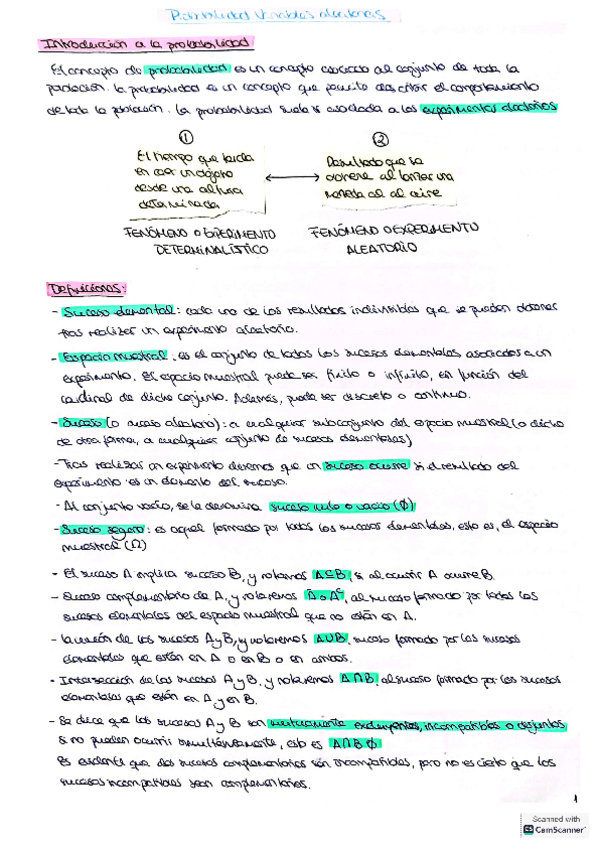 Probabilidad Variables aleatorias
Introducción a la probabilidad
El concepto de probabilidad es un concepto asociado al conjunto de toda la
población. La probabilidad es un concepto que permite describir el comportamiento
de toda la población. La probabilidad suele ir asociada a los experimentos aleatorios
1
El tiempo que tarda
en caer un objeto
desde una altura
determinada
FENÓMENO O EXPERIMENTO
DETERMINALÍSTICO
2
Resultado que se
obtiene al lanzar una
moneda al aire
FENÓMENO O EXPERIMENTO
ALEATORIO
Definiciones:
- Suceso elemental: cada uno de los resultados indivisibles que se pueden obtener
tras realizar un experimento aleatorio.
- Espacio muestral: es el conjunto de todos los sucesos elementales asociados a un
experimento. El espacio muestral puede ser finito o infinito, en función del
cardinal de dicho conjunto. Además, puede ser discreto o continuo.
- Suceso (o suceso aleatorio): a cualquier subconjunto del espacio muestral (o dicho
de otra forma, a cualquier conjunto de sucesos elementales)
- Tras realizar un experimento diremos que un suceso ocurre si el resultado del
experimento es un elemento del suceso.
- Al conjunto vacío, se le denomina suceso nulo o vacío (∅)
- Suceso seguro: es aquel formado por todos los sucesos elementales, esto es, el espacio
muestral (Ω)
- El suceso A implica suceso B, y notamos A⊆B, si al ocurrir A ocurre B.
- Suceso complementario de A, y notaremos Ā o Aᶜ, al suceso formado por todos los
sucesos elementales del espacio muestral que no están en A.
- La unión de los sucesos A y B, y notaremos A∪B, suceso formado por los sucesos
elementales que están en A o en B o en ambos.
- Intersección de los sucesos A y B, y notaremos A∩B, al suceso formado por los sucesos
elementales que están en A y en B.
- Se dice que los sucesos A y B son mutuamente excluyentes, incompatibles o disjuntos
si no pueden ocurrir simultáneamente, esto es A∩B ∅
Es evidente que dos sucesos complementarios son incompatibles, pero no es cierto que los
sucesos incompatibles sean complementarios.
1
Scanned with
CS CamScanner